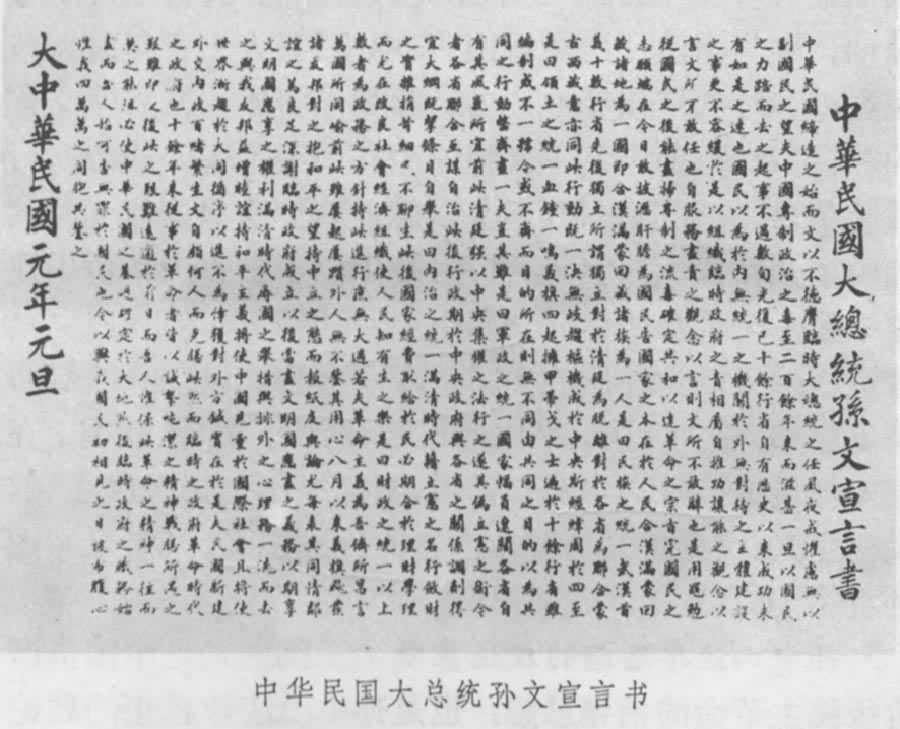 中華民國大總統孫文宣言書
中華民國締造之始而文以不德膺臨時大總統之任夙夜戒懼慮無以
副國民之望夫中國專制政治之毒至二百餘年來而滋甚一旦以國民
之力踣而去之起事不過數旬光復已十餘行省自有歷史以來成功未
有如是之速也國民以為於內無統一之機關於外無對待之主體建設
之事更不容緩於是以組織臨時政府之責相屬自推功讓能之觀念以
言文所不敢任也自服務盡責之觀念以言則文所不敢辭也是用黽勉
從國民之後能盡掃專制之流毒確定共和以達革命之宗旨完國民之
志願端在今日敢披瀝肝膽為國民告國家之本在於人民合漢滿蒙回
藏諸地為一國即合漢滿蒙回藏諸族為一人是曰民族之統一武漢首
義十數行省先後獨立所謂獨立對於清廷為脫離對於各省為聯合蒙
古西藏意亦同此行動既一決無歧趨樞機成於中央斯經緯周於四至
是曰領土之統一血鐘一鳴義旗四起擁甲帶戈之士遍於十餘行省雖
編制或不一號令或不齊而目的所在則無不同由共同之目的以為共
同之行動整齊畫一夫豈其難是曰軍政之統一國家幅員遼闊各省自
有其風氣所宜前此清廷強以中央集權之法行之遂其偽立憲之術今
者各省聯合互謀自治此後行政期於中央政府與各省之關係調劑得
宜大綱既挈條目自舉是曰內治之統一滿清時代藉立憲之名行斂財
之實雜捐苛細民不聊生此後國家經費取給於民必期合於理財學理
而尤在改良社會經濟組織使人民知有生之樂是曰財政之統一以上
數者為政務之方針持此進行庶無大過若革命主義為吾儕所昌言
萬國所同喻前此雖屢起屢躓外人無不鑒其用心八月以來義旗飆發
諸友邦對之抱和平之望持中立之態而報紙及輿論尤每表其同情鄰
誼之篤良足深謝臨時政府成立以後當盡文明國應盡之義務以期享
文明國應享之權利滿清時代辱國之舉措與排外之心理務一洗而去
之與我友邦益增睦誼持和平主義將使中國見重於國際社會且將使
世界漸趨於大同循序以進不為倖獲對外方針實在於是夫民國新建
外交內政百緒繁生文自顧何人而克勝此然而臨時之政府革命時代
之政府也十餘年來從事於革命者皆以誠摯純潔之精神戰勝所遇之
艱難即後此之艱難遠逾於前日而吾人惟保此革命之精神一往而
莫之能阻必使中華民國之基礎確定於大地然後臨時政府之職務始
盡而吾人始可告無罪於國民也今以與我國民初相見之日披布腹心
惟我四萬萬之同胞共鑒之
大中華民國元年元旦
中华民国大总统孙文宣言书